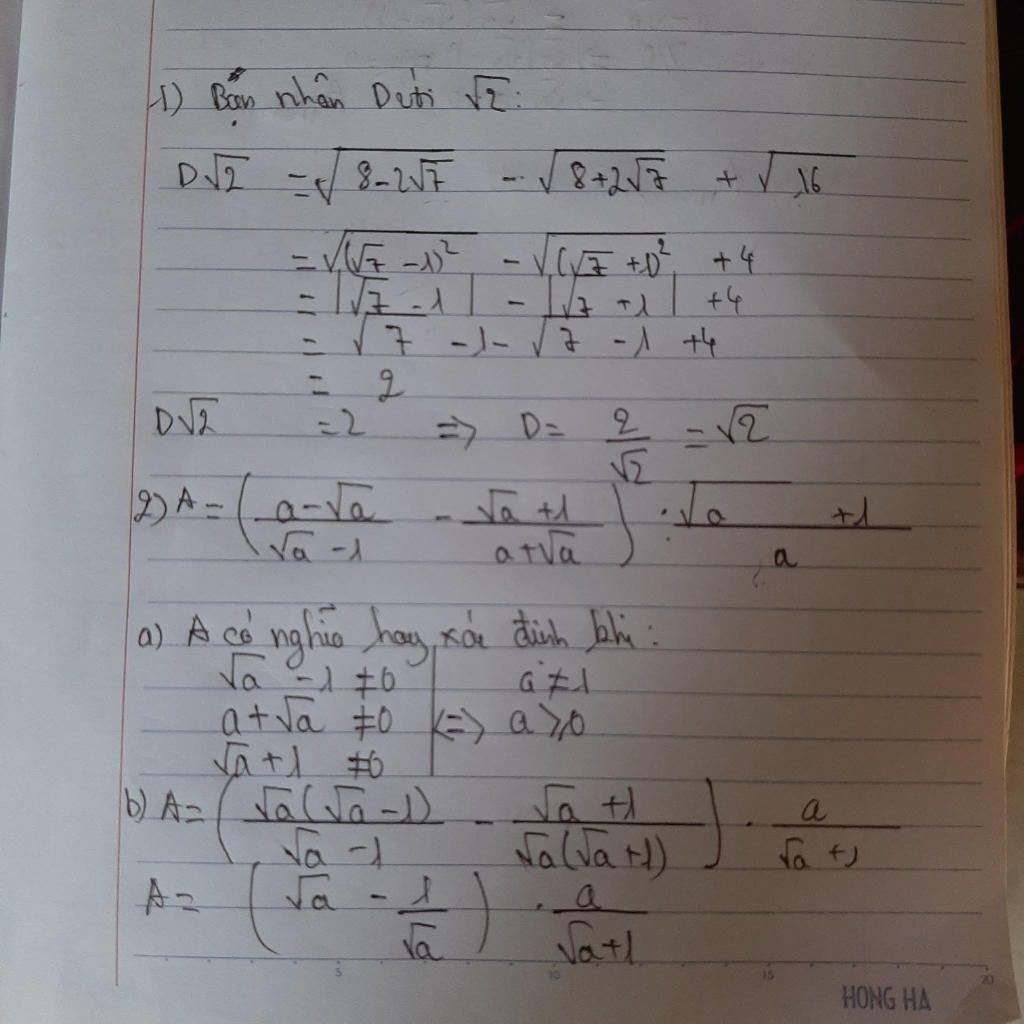 1) Bạn nhân Dưới √2:
D√2 = √(8-2√7) - √(8+2√7) + √16
= √((√7 -1)²) - √((√7 +1)²) +4
= |√7 -1| - |√7 +1| +4
= √7 -1- √7 -1 +4
= 2
D√2 =2 => D= 2/√2 =√2
2) A = ((a-√a)/(√a -1) - (√a +1)/(a+√a)) : (√a +1)/a
a) A có nghĩa hay xác định khi:
√a -1 ≠0 | a ≠1
a+√a ≠0 <=> a ≥0
√a+1 ≠0
b) A= (√a(√a -1)/(√a -1) - (√a +1)/(√a(√a +1))) . a/(√a +1)
A= (√a - 1/√a) . a/(√a+1)
5 10 15 20
HONG HA